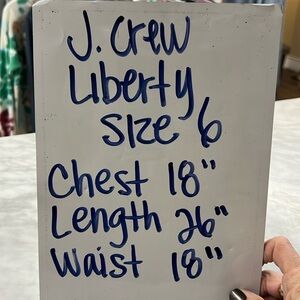 J. Crew
Liberty
Size 6
Chest 18"
Length 26"
Waist 18"